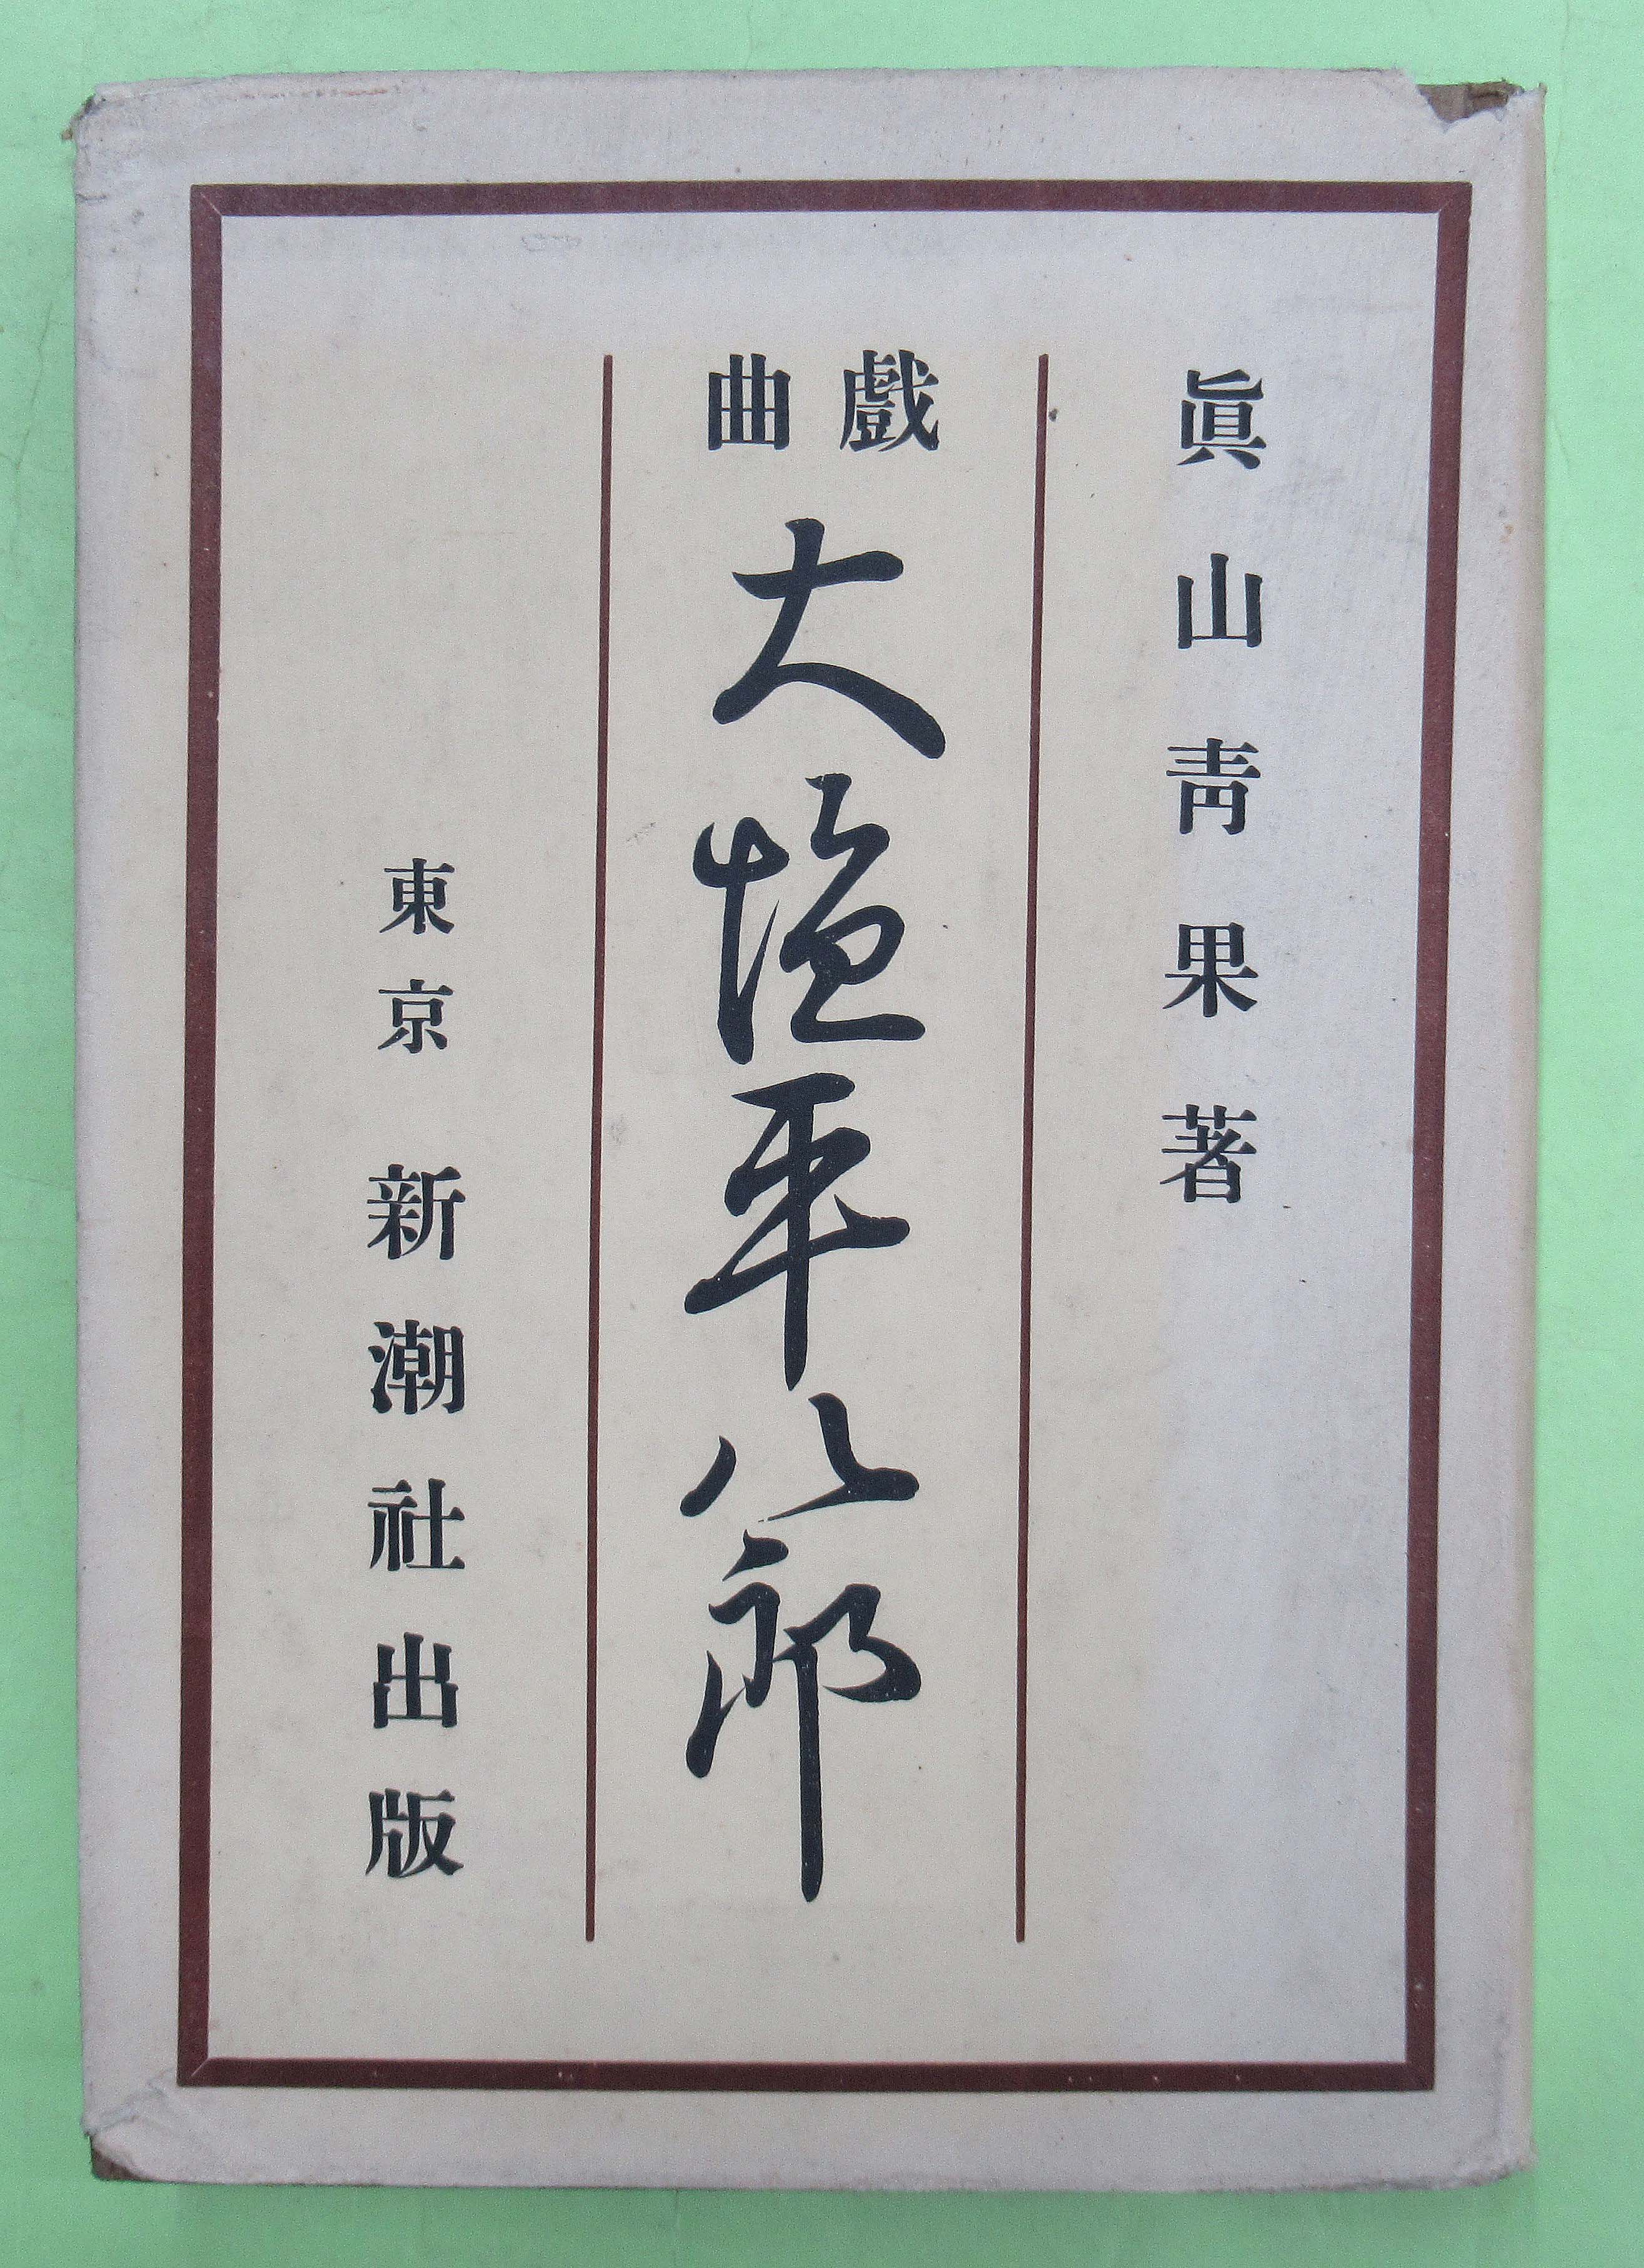 眞山靑果著
戲曲
大塩平八郎
東京 新潮社出版